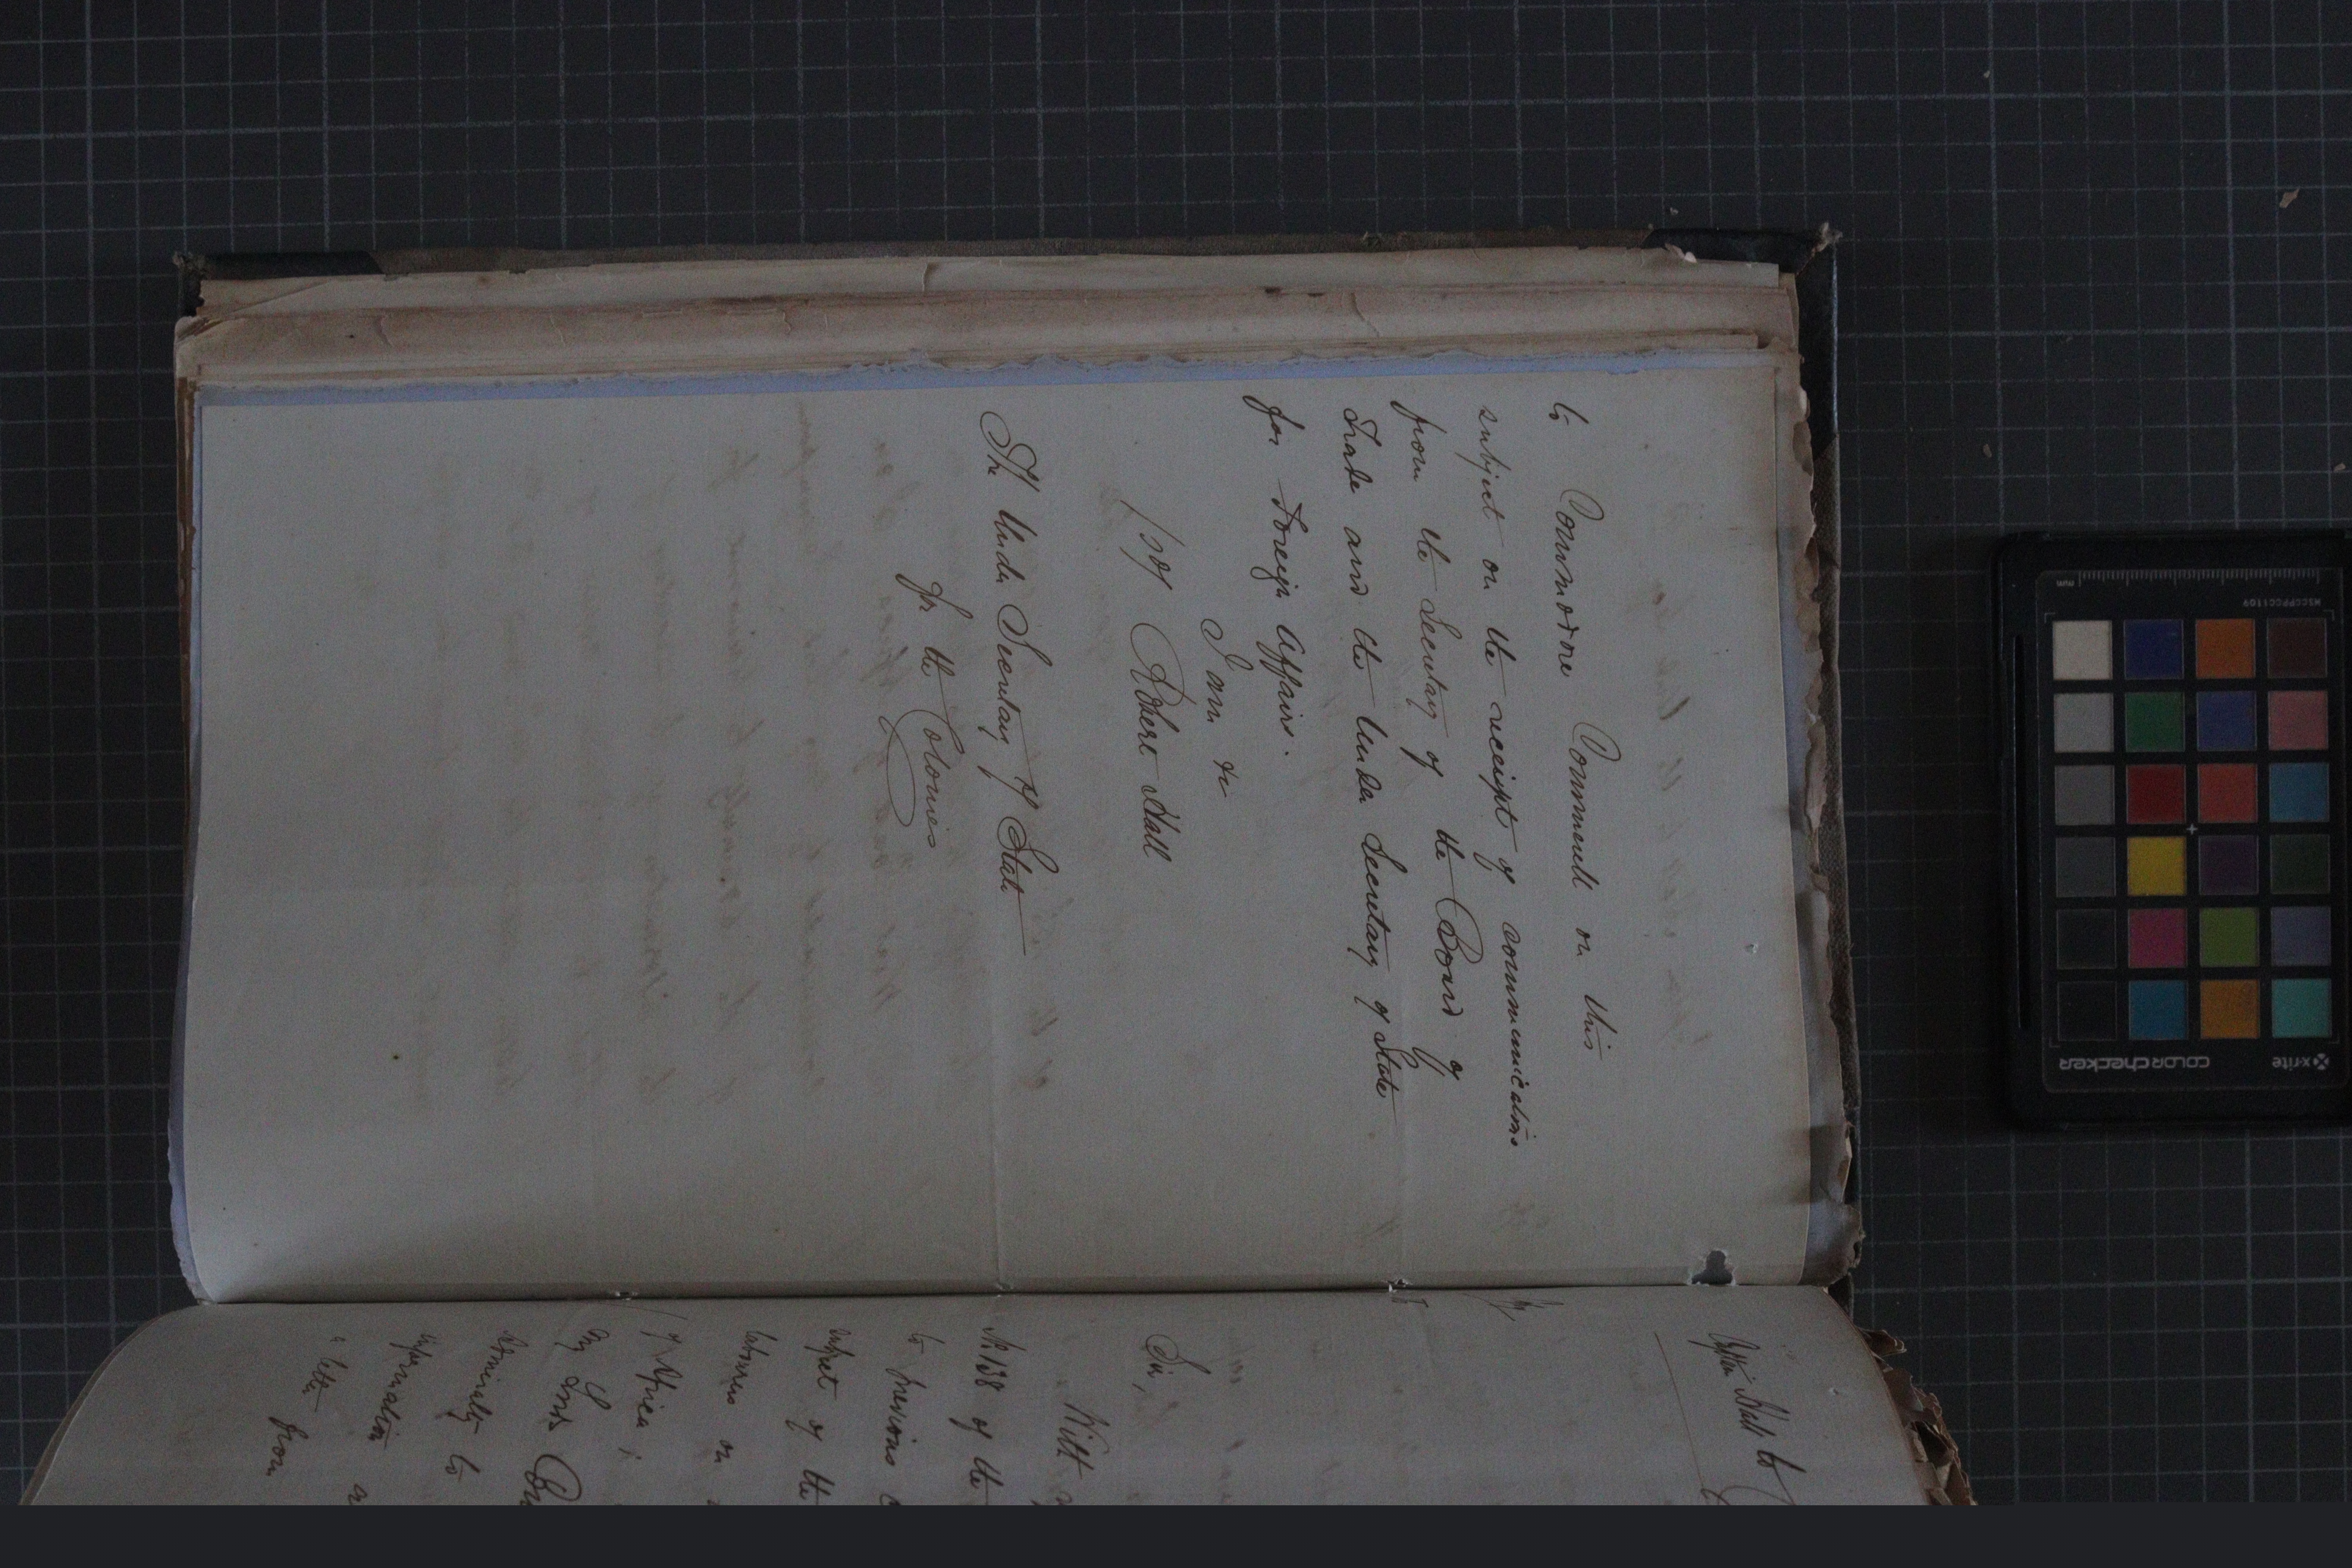 to Commodore Commerell on this
subject on the receipt of communications
from the Secretary of the Board of
Trade and the Under Secretary of State
for Foreign Affairs.
I am &c
/sg/ Robert Hall
The Under Secretary of State
for the Colonies
Captn Hall to
Sir,
With
No 138 of the
to previous
respect of the
labourers on
of Africa
my Lords
Admiralty to
information
a letter from
mm
MSCCPPCC1109
x-rite
colorchecker